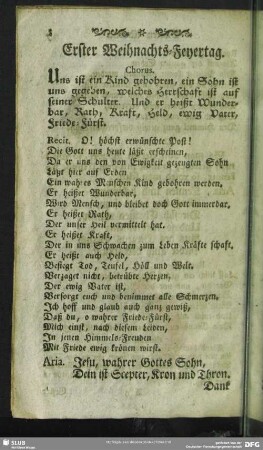 Erster Weihnachts-Feyertag.
Chorus.
Uns ist ein Kind gebohren, ein Sohn ist
uns gegeben, welches Herrschaft ist auf
seiner Schulter. Und er heißt Wunder-
bar, Rath, Kraft, Held, ewig Vater,
Friede-Fürst.
Recit. O! höchst erwünschte Post!
Die Gott uns heute läßt erscheinen,
Da er uns den von Ewigkeit gezeugten Sohn
Läßt hier auf Erden
Ein wahres Menschen Kind gebohren werden,
Er heißet Wunderbar,
Wird Mensch, und bleibet doch Gott immerdar,
Er heißet Rath,
Der unser Heil vermittelt hat.
Er heißet Kraft,
Der in uns Schwachen zum Leben Kräfte schaft,
Er heißt auch Held,
Besiegt Tod, Teufel, Höll und Welt.
Verzaget nicht, betrübte Herzen,
Der ewig Vater ist,
Versorgt euch und benimmet alle Schmerzen,
Ich hoff und glaub auch ganz gewiß,
Daß du, o wahrer Friede-Fürst,
Mich einst, nach diesem Leiden,
In jenen Himmels-Freuden
Mit Friede ewig krönen wirst.
Aria. Jesu, wahrer Gottes Sohn,
Dein ist Scepter, Kron und Thron.
Dank
SLUB
DFG